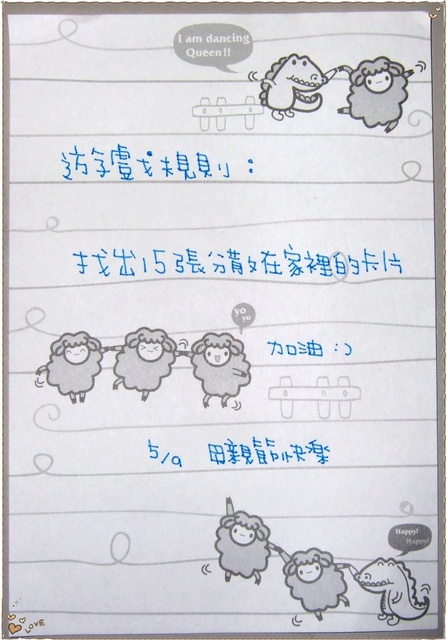 I am dancing
Queen!!
遊戲規則：
找出15張分散在家裡的卡片
yo
yo
加油 :)
5/9 母親節快樂
Happy!
Happy!
LOVE